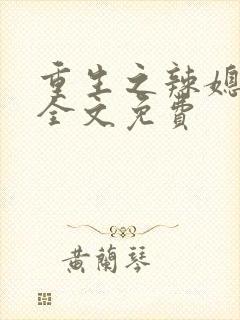 重生之辣媳
全文免費
黃蘭琴